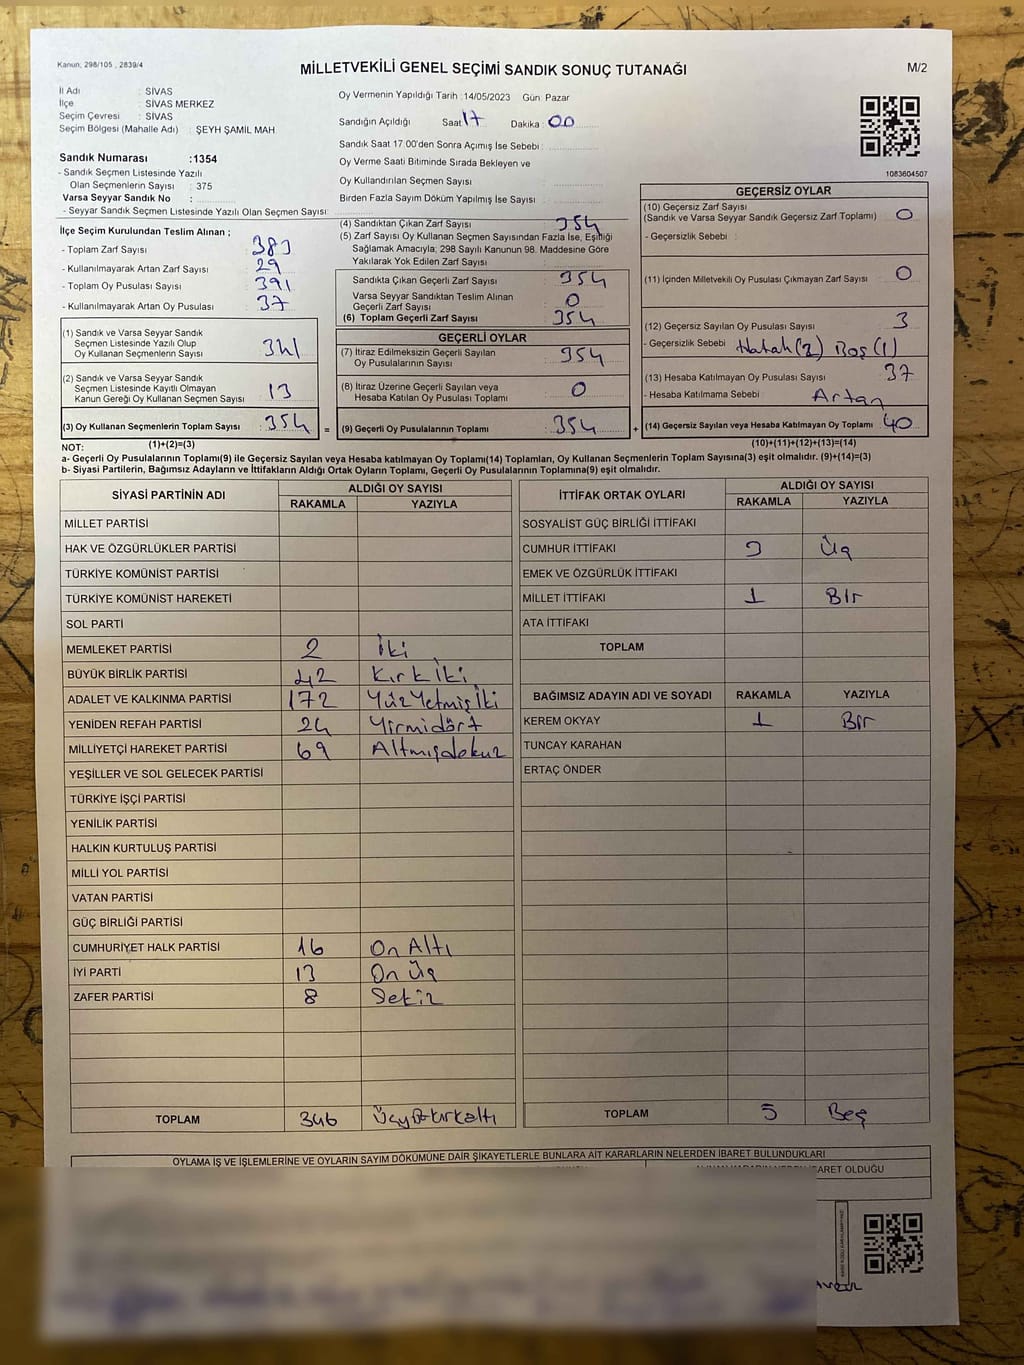 Kanun; 298/105 , 2839/4
MİLLETVEKİLİ GENEL SEÇİMİ SANDIK SONUÇ TUTANAĞI
M/2
İl Adı : SİVAS
İlçe : SİVAS MERKEZ
Seçim Çevresi : SİVAS
Seçim Bölgesi (Mahalle Adı) : ŞEYH ŞAMİL MAH
Sandık Numarası :1354
- Sandık Seçmen Listesinde Yazılı
Olan Seçmenlerin Sayısı : 375
Varsa Seyyar Sandık No :
- Seyyar Sandık Seçmen Listesinde Yazılı Olan Seçmen Sayısı:
Oy Vermenin Yapıldığı Tarih :14/05/2023 Gün: Pazar
Sandığın Açıldığı Saat: 17 Dakika : 00
Sandık Saat 17.00'den Sonra Açımış İse Sebebi :
Oy Verme Saati Bitiminde Sırada Bekleyen ve
Oy Kullandırılan Seçmen Sayısı :
Birden Fazla Sayım Döküm Yapılmış İse Sayısı :
1083604507
İlçe Seçim Kurulundan Teslim Alınan ;
- Toplam Zarf Sayısı : 383
- Kullanılmayarak Artan Zarf Sayısı : 29
- Toplam Oy Pusulası Sayısı : 391
- Kullanılmayarak Artan Oy Pusulası : 37
(1) Sandık ve Varsa Seyyar Sandık
Seçmen Listesinde Yazılı Olup
Oy Kullanan Seçmenlerin Sayısı : 341
(2) Sandık ve Varsa Seyyar Sandık
Seçmen Listesinde Kayıtlı Olmayan
Kanun Gereği Oy Kullanan Seçmen Sayısı : 13
(3) Oy Kullanan Seçmenlerin Toplam Sayısı : 354 =
(1)+(2)=(3)
(4) Sandıktan Çıkan Zarf Sayısı : 354
(5) Zarf Sayısı Oy Kullanan Seçmen Sayısından Fazla İse, Eşitliği
Sağlamak Amacıyla; 298 Sayılı Kanunun 98. Maddesine Göre
Yakılarak Yok Edilen Zarf Sayısı :
Sandıkta Çıkan Geçerli Zarf Sayısı : 354
Varsa Seyyar Sandıktan Teslim Alınan
Geçerli Zarf Sayısı : 0
(6) Toplam Geçerli Zarf Sayısı : 354
GEÇERLİ OYLAR
(7) İtiraz Edilmeksizin Geçerli Sayılan
Oy Pusulalarının Sayısı : 354
(8) İtiraz Üzerine Geçerli Sayılan veya
Hesaba Katılan Oy Pusulası Toplamı : 0
(9) Geçerli Oy Pusulalarının Toplamı : 354 +
GEÇERSİZ OYLAR
(10) Geçersiz Zarf Sayısı
(Sandık ve Varsa Seyyar Sandık Geçersiz Zarf Toplamı) : 0
- Geçersizlik Sebebi :
(11) İçinden Milletvekili Oy Pusulası Çıkmayan Zarf Sayısı : 0
(12) Geçersiz Sayılan Oy Pusulası Sayısı : 3
- Geçersizlik Sebebi : Hatalı(2) Boş(1)
(13) Hesaba Katılmayan Oy Pusulası Sayısı : 37
- Hesaba Katılmama Sebebi : Artan
(14) Geçersiz Sayılan veya Hesaba Katılmayan Oy Toplamı : 40
(10)+(11)+(12)+(13)=(14)
NOT:
a- Geçerli Oy Pusulalarının Toplamı(9) ile Geçersiz Sayılan veya Hesaba katılmayan Oy Toplamı(14) Toplamları, Oy Kullanan Seçmenlerin Toplam Sayısına(3) eşit olmalıdır. (9)+(14)=(3)
b- Siyasi Partilerin, Bağımsız Adayların ve İttifakların Aldığı Ortak Oyların Toplamı, Geçerli Oy Pusulalarının Toplamına(9) eşit olmalıdır.
SİYASİ PARTİNİN ADI ALDIĞI OY SAYISI
RAKAMLA YAZIYLA
MİLLET PARTİSİ
HAK VE ÖZGÜRLÜKLER PARTİSİ
TÜRKİYE KOMÜNİST PARTİSİ
TÜRKİYE KOMÜNİST HAREKETİ
SOL PARTİ
MEMLEKET PARTİSİ 2 İki
BÜYÜK BİRLİK PARTİSİ 42 Kırkiki
ADALET VE KALKINMA PARTİSİ 172 Yüzyetmişiki
YENİDEN REFAH PARTİSİ 24 Yirmidört
MİLLİYETÇİ HAREKET PARTİSİ 69 Altmışdokuz
YEŞİLLER VE SOL GELECEK PARTİSİ
TÜRKİYE İŞÇİ PARTİSİ
YENİLİK PARTİSİ
HALKIN KURTULUŞ PARTİSİ
MİLLİ YOL PARTİSİ
VATAN PARTİSİ
GÜÇ BİRLİĞİ PARTİSİ
CUMHURİYET HALK PARTİSİ 16 On Altı
İYİ PARTİ 13 On Üç
ZAFER PARTİSİ 8 Sekiz
TOPLAM 346 Üçyüzkırkaltı
İTTİFAK ORTAK OYLARI ALDIĞI OY SAYISI
RAKAMLA YAZIYLA
SOSYALİST GÜÇ BİRLİĞİ İTTİFAKI
CUMHUR İTTİFAKI 3 Üç
EMEK VE ÖZGÜRLÜK İTTİFAKI
MİLLET İTTİFAKI 1 Bir
ATA İTTİFAKI
TOPLAM
BAĞIMSIZ ADAYIN ADI VE SOYADI RAKAMLA YAZIYLA
KEREM OKYAY 1 Bir
TUNCAY KARAHAN
ERTAÇ ÖNDER
TOPLAM 5 Beş
OYLAMA İŞ VE İŞLEMLERİNE VE OYLARIN SAYIM DÖKÜMÜNE DAİR ŞİKAYETLERLE BUNLARA AİT KARARLARIN NELERDEN İBARET BULUNDUKLARI
OLDUĞU